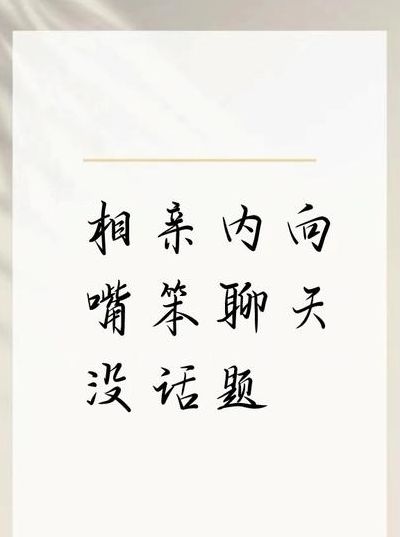 相亲内向
嘴笨聊天
没话题